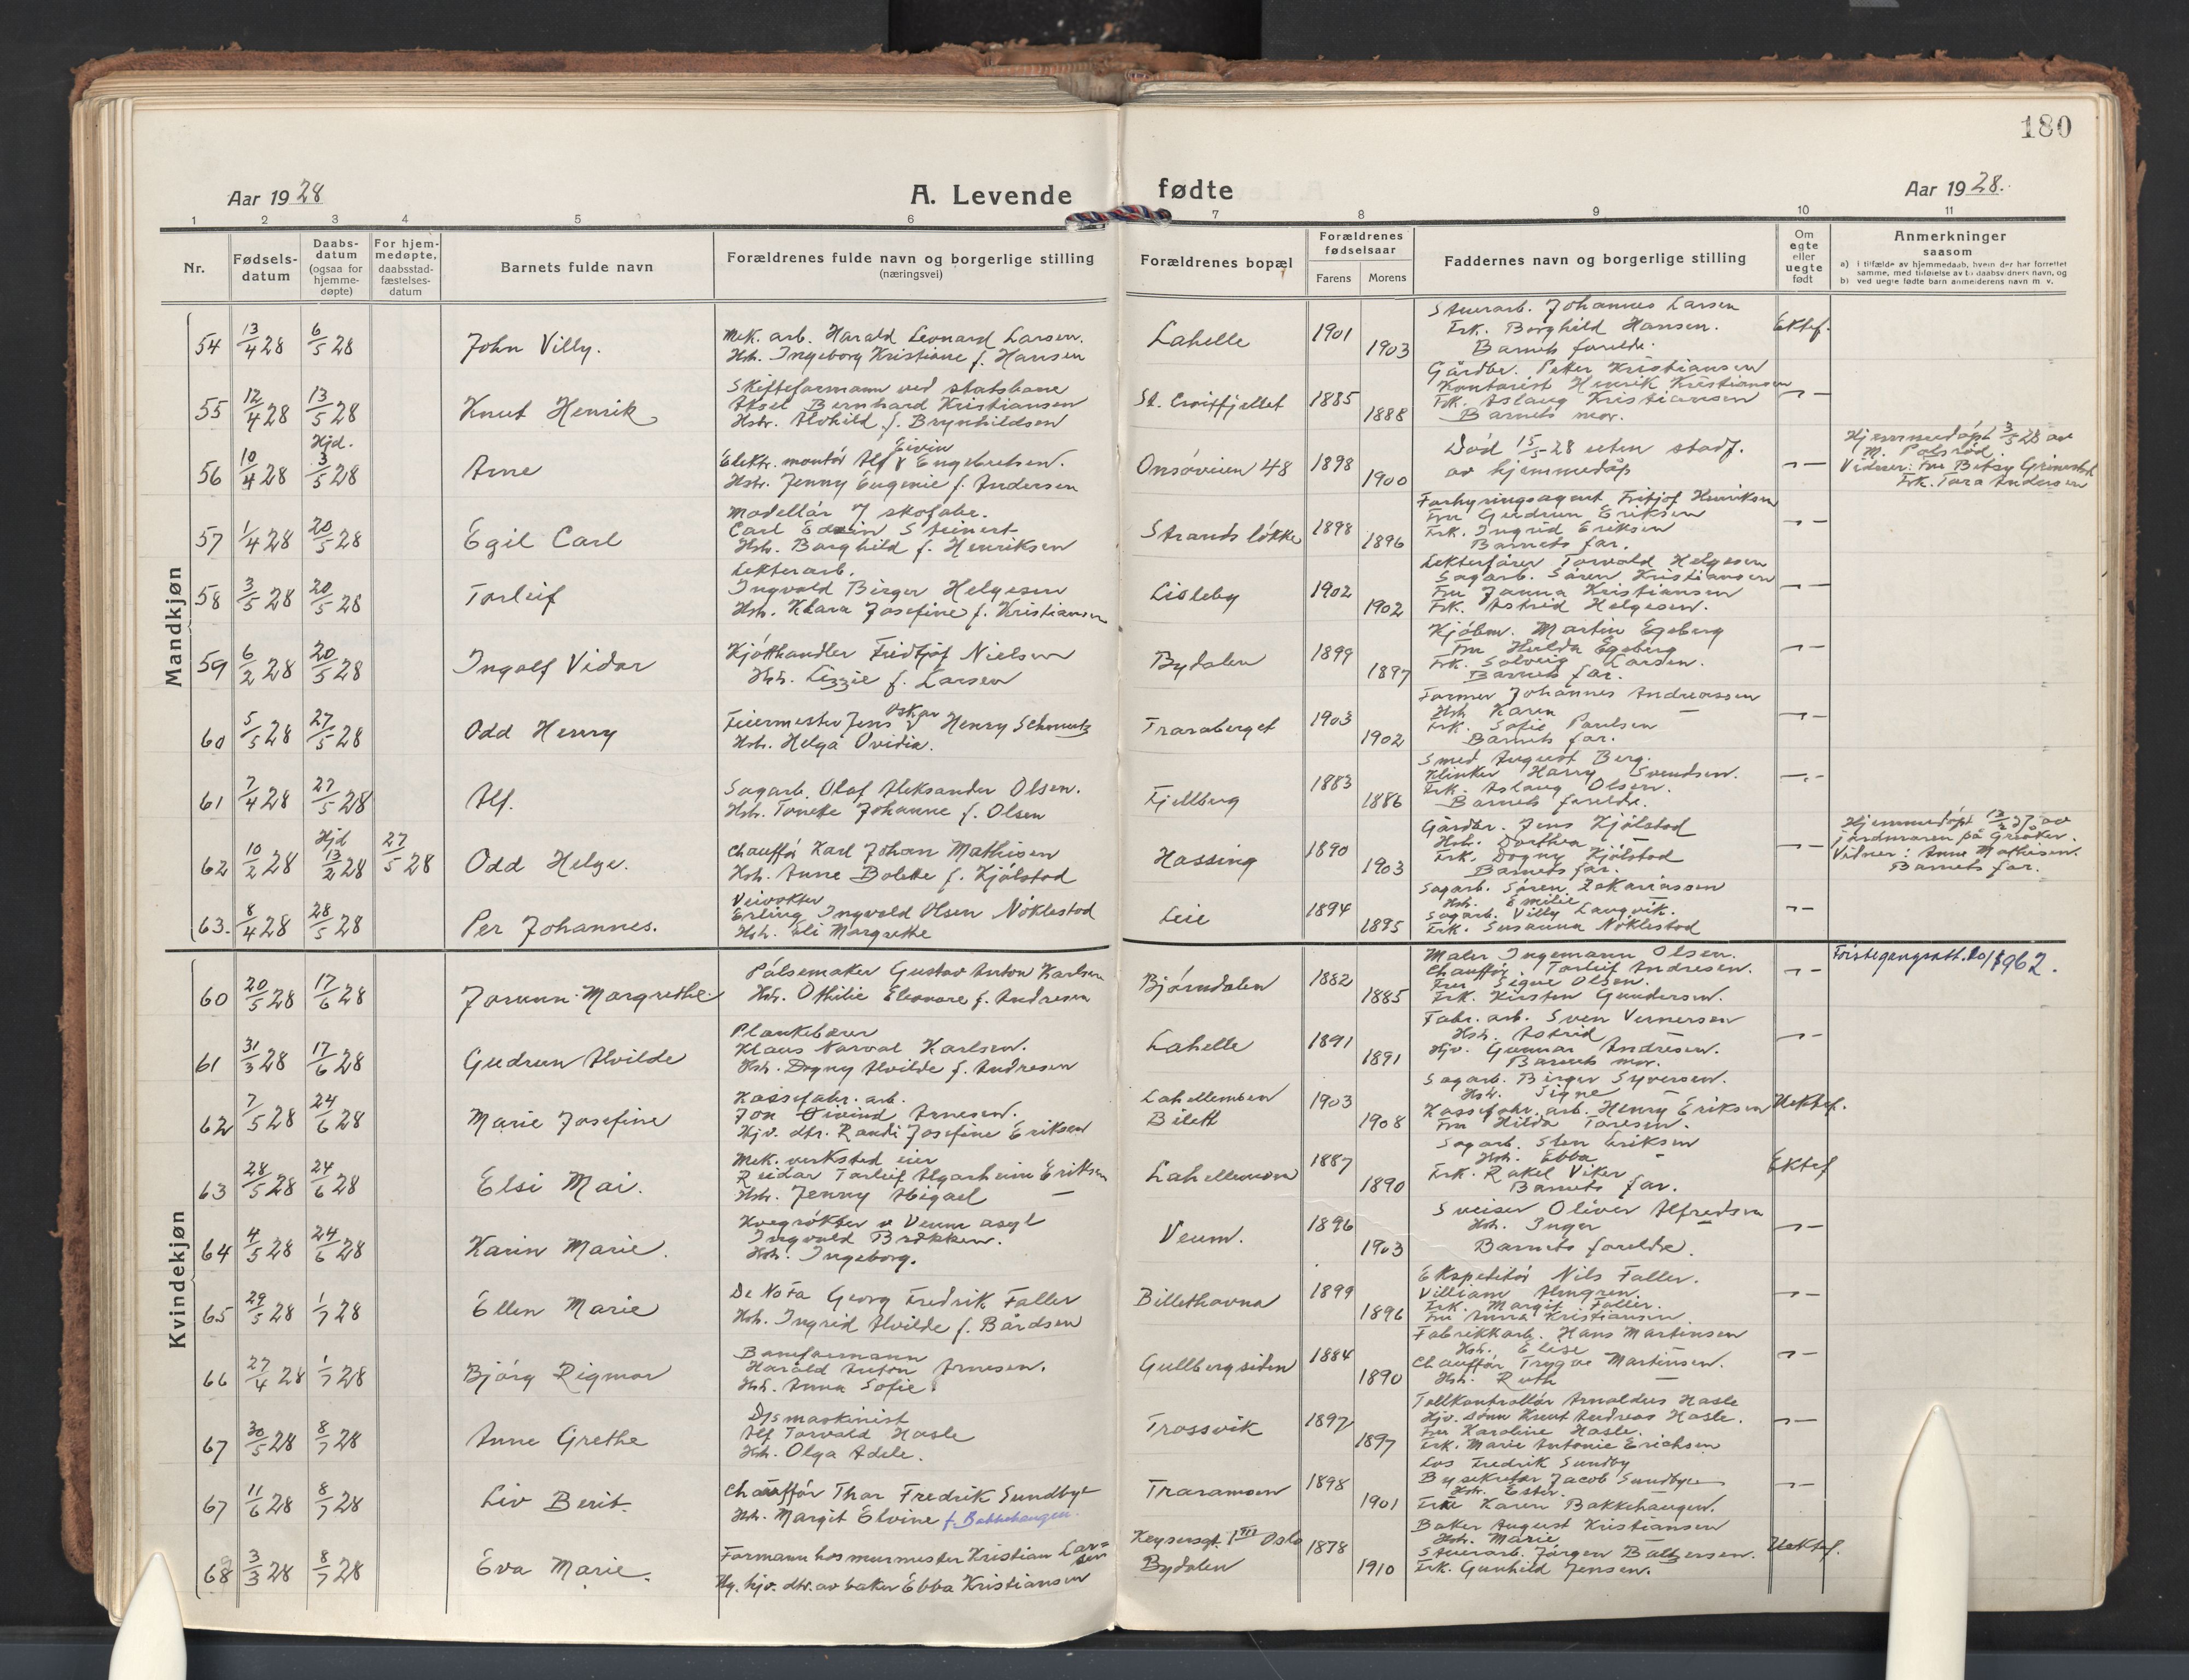 180
Aar 1928
A. Levende
fødte
Aar 1928.
1 2 3 4 5 6 7 8 9 10 11
Nr.
Fødsels-datum
Daabs-datum (ogsaa for hjemme-døpte)
For hjem-medøpte, daabsstad-fæstelses-datum
Barnets fulde navn
Forældrenes fulde navn og borgerlige stilling (næringsvei)
Forældrenes bopæl
Forældrenes fødselsaar
Farens
Morens
Faddernes navn og borgerlige stilling
Om egte eller uegte født
Anmerkninger
saasom
a) i tilfælde av hjemmedaab, hvem der har forrettet samme, med tilføielse av to daabsvidners navn, og
b) ved uegte fødte barn anmelderens navn m. v.
Mandkjøn
54 13/4 28 6/5 28 John Villy.
Mek. arb. Harald Leonard Larsen.
Hstr. Ingeborg Kristiane f. Hansen
Lahelle 1901 1903
Stuerarb. Johannes Larsen
Frk. Borghild Hansen.
Barnets foreldre.
Ektef.
55 12/4 28 13/5 28 Knut Henrik
Skifteformann ved statsbane
Aksel Bernhard Kristiansen
Hstr. Alvhild f. Brynhildsen
St. Croixfjellet 1885 1888
Gårdbr. Peter Kristiansen
Kontorist Henrik Kristiansen
Frk. Aslaug Kristiansen
Barnets mor.
56 10/4 28 Hjd. 3/5 28 Arne
Elektr. montör Alf Eivin Engebretsen.
Hstr. Jenny Eugenie f. Andersen
Onsöveien 48 1898 1900
Död 15/5-28 uten stadf.
av hjemmedåp
Hjemmedöpt 3/5 28 av
M. Palsröd.
Vidner: Fru Betsy Grimestad
Frk. Tora Andersen
57 1/4 28 20/5 28 Egil Carl
Modellör / skofabr.
Carl Edvin Steinert
Hstr. Borghild f. Henriksen
Strandslökke 1898 1896
Forhyringsagent Fritjof Henriksen
Fru Gudrun Eriksen
Frk. Ingrid Eriksen
Barnets far.
58 3/5 28 20/5 28 Torleif
Lekterarb.
Ingvald Birger Helgesen
Hstr. Klara Josefine f. Kristiansen
Lisleby 1902 1902
Lekterförer Torvald Helgesen
Sagarb. Sören Kristiansen
Fru Janna Kristiansen
Frk. Astrid Helgesen.
59 6/2 28 20/5 28 Ingolf Vidar
Kjötthandler Fridtjof Nielsen
Hstr. Lizzie f. Larsen
Bydalen 1899 1897
Kjöbm. Martin Egeberg
Fru Hulda Egeberg
Frk. Solveig Larsen.
Barnets far.
60 5/5 28 27/5 28 Odd Henry
Feiermester Jens Oskar Henry Schmutz
Hstr. Helga Ovidia.
Traraberget 1903 1902
Former Johannes Andreassen
Hstr. Karen
Frk. Sofie Paulsen
Barnets far.
61 7/4 28 27/5 28 Alf.
Sagarb. Olaf Aleksander Olsen.
Hstr. Tonette Johanne f. Olsen
Fjellberg 1883 1886
Smed August Berg.
Klinker Harry Svendsen.
Frk. Aslaug Olsen.
Barnets foreldre.
62 10/2 28 Hjd 13/2 28 27/5 28 Odd Helge.
Chaufför Karl Johan Mathisen
Hstr. Anne Bolette f. Kjölstad
Hassing 1890 1903
Gårdbr. Jens Kjölstad
Hstr. Dorthea
Frk. Dagny Kjölstad
Barnets far.
Hjemmedöpt 13/2 27 av
jordmoren på Greåker.
Vidner: Anne Mathisen.
Barnets far.
63. 8/4 28 28/5 28 Per Johannes.
Veivokter
Erling Ingvald Olsen Nöklestad
Hstr. Eli Margrethe
Leie 1894 1895
Sagarb. Sören Zakariassen
Hstr. Emilie
Sagarb. Villy Laugvik.
Frk. Susanna Nöklestad
Kvindekjøn
60 20/5 28 17/6 28 Jorunn Margrethe
Pölsemaker Gustav Anton Karlsen
Hstr. Othilie Eleonore f. Andresen
Bjørndalen 1882 1885
Maler Ingemann Olsen.
Chaufför Torleif Andresen.
Fru Signe Olsen.
Frk. Kirsten Gundersen.
Förstegangsatt. 1962.
61 31/3 28 17/6 28 Gudrun Alvilde
Plankebærer
Klaus Narval Karlsen.
Hstr. Dagny Alvilde f. Andresen
Lahelle 1891 1891
Fabr. arb. Sven Vernersen
Hstr. Astrid
Hjv. Gunnar Andresen.
Barnets mor.
62 7/5 28 24/6 28 Marie Josefine
Kassefabr. arb.
Jon Eivind Arnesen.
Hjv. dtr. Randi Josefine Eriksen
Lahellemoen
Bilett
1903 1908
Sagarb. Birger Syversen.
Hstr. Signe
Kassefabr. arb. Henry Eriksen
Fru Hilda Toresen.
Uektef.
63 28/5 28 24/6 28 Elsi Mai.
Mek. verksted eier
Reidar Torleif Algarheim Eriksen
Hstr. Jenny Abigael
Lahellemoen 1887 1890
Sagarb. Sten Eriksen
Hstr. Ebba
Frk. Rakel Viker
Barnets far.
Ektef
64 4/5 28 24/6 28 Karin Marie.
Kvegrökter v Veum asyl
Ingvald Brekken.
Hstr. Ingeborg.
Veum. 1896 1903
Sveiser Oliver Alfredsen
Hstr. Inger
Barnets foreldre.
65 29/5 28 1/7 28 Ellen Marie
De NoFa Georg Fredrik Faller
Hstr. Ingrid Alvilde f. Bårdsen
Billethavna 1899 1896
Ekspeditör Nils Faller.
Villiam Almgren.
Frk. Margit Faller.
Fru Anna Kristiansen.
66 27/4 28 1/7 28 Bjørg Rigmor
Baneformann
Harald Anton Arnesen.
Hstr. Anna Sofie.
Gullbergsiden 1884 1890
Fabrikkarb. Hans Martinsen
Hstr. Elise
Chauffør Trygve Martinsen.
Hstr. Ruth
67 30/5 28 8/7 28 Anne Grethe
D/s maskinist
Alf Torvald Hasle
Hstr. Olga Adele.
Trossvik 1897 1897
Tollkontrollör Arnoldus Hasle
Hjv. sönn Knut Andreas Hasle.
Fru Karoline Hasle.
Frk. Marie Antonie Erichsen
67 11/6 28 8/7 28 Liv Berit.
Chauffør Thor Fredrik Sundbye
Hstr. Margit Elvine f. Bakkehaugen.
Traramoen 1898 1901
Los Fredrik Sundby
Bysekretær Jacob Sundbye
Hstr. Ester.
Frk Karen Bakkehaugen.
68 3/3 28 8/7 28 Eva Marie.
Formann hos murmester Kristian Larsen
Ug. hjv. dtr. av baker Ebba Kristiansen
Keysersgt. 1 III Oslo
Bydalen
1878 1910
Baker August Kristiansen
Hstr. Marie
Stuerarb. Jörgen Baltzersen.
Frk. Gunhild Jensen.
Uektef.